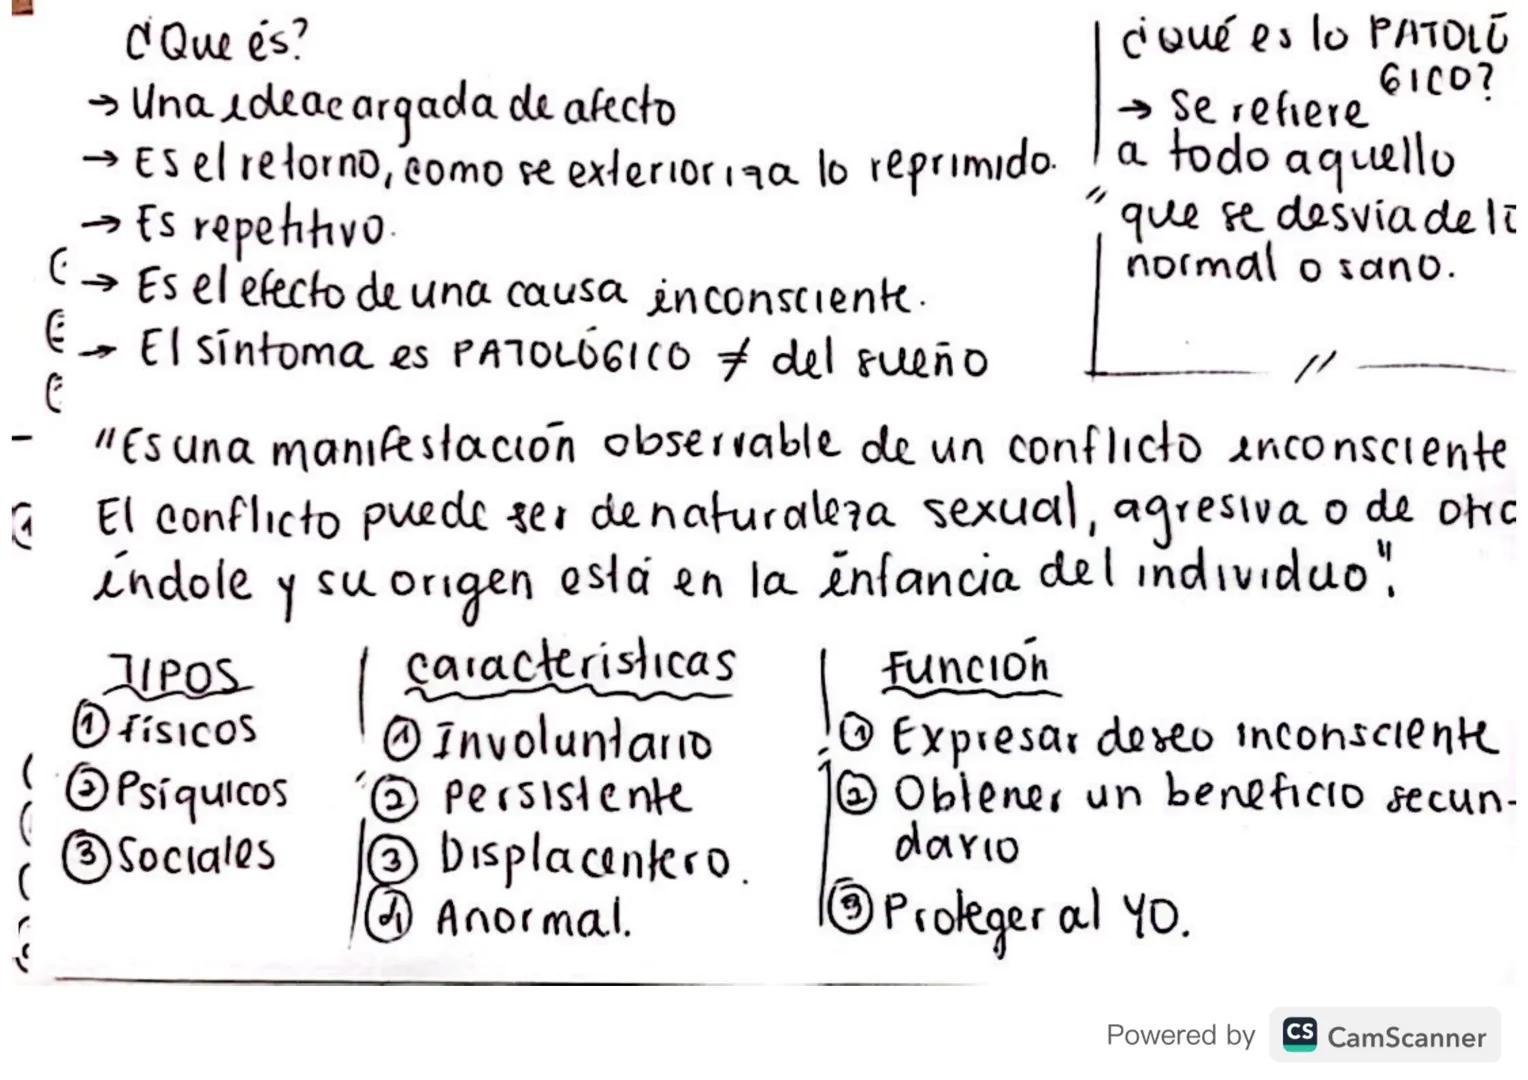 ¿Que és?
→ Una idea cargada de afecto
→ Es el retorno, como se exterioriza lo reprimido.
→ Es repetitivo.
→ Es el efecto de una causa inconsciente.
→ El síntoma es PATOLÓGICO ≠ del sueño
¿qué es lo PATOLÓ
GICO?
→ Se refiere
a todo aquello
que se desvía de lo
normal o sano.
"Es una manifestación observable de un conflicto inconsciente
El conflicto puede ser de naturaleza sexual, agresiva o de otra
índole y su origen está en la infancia del individuo".
TIPOS
① físicos
② Psíquicos
③ Sociales
Características
① Involuntario
② Persistente
③ Displacentero.
④ Anormal.
Función
① Expresar deseo inconsciente
② Obtener un beneficio secun-
dario
③ Proteger al YO.
Powered by CS CamScanner